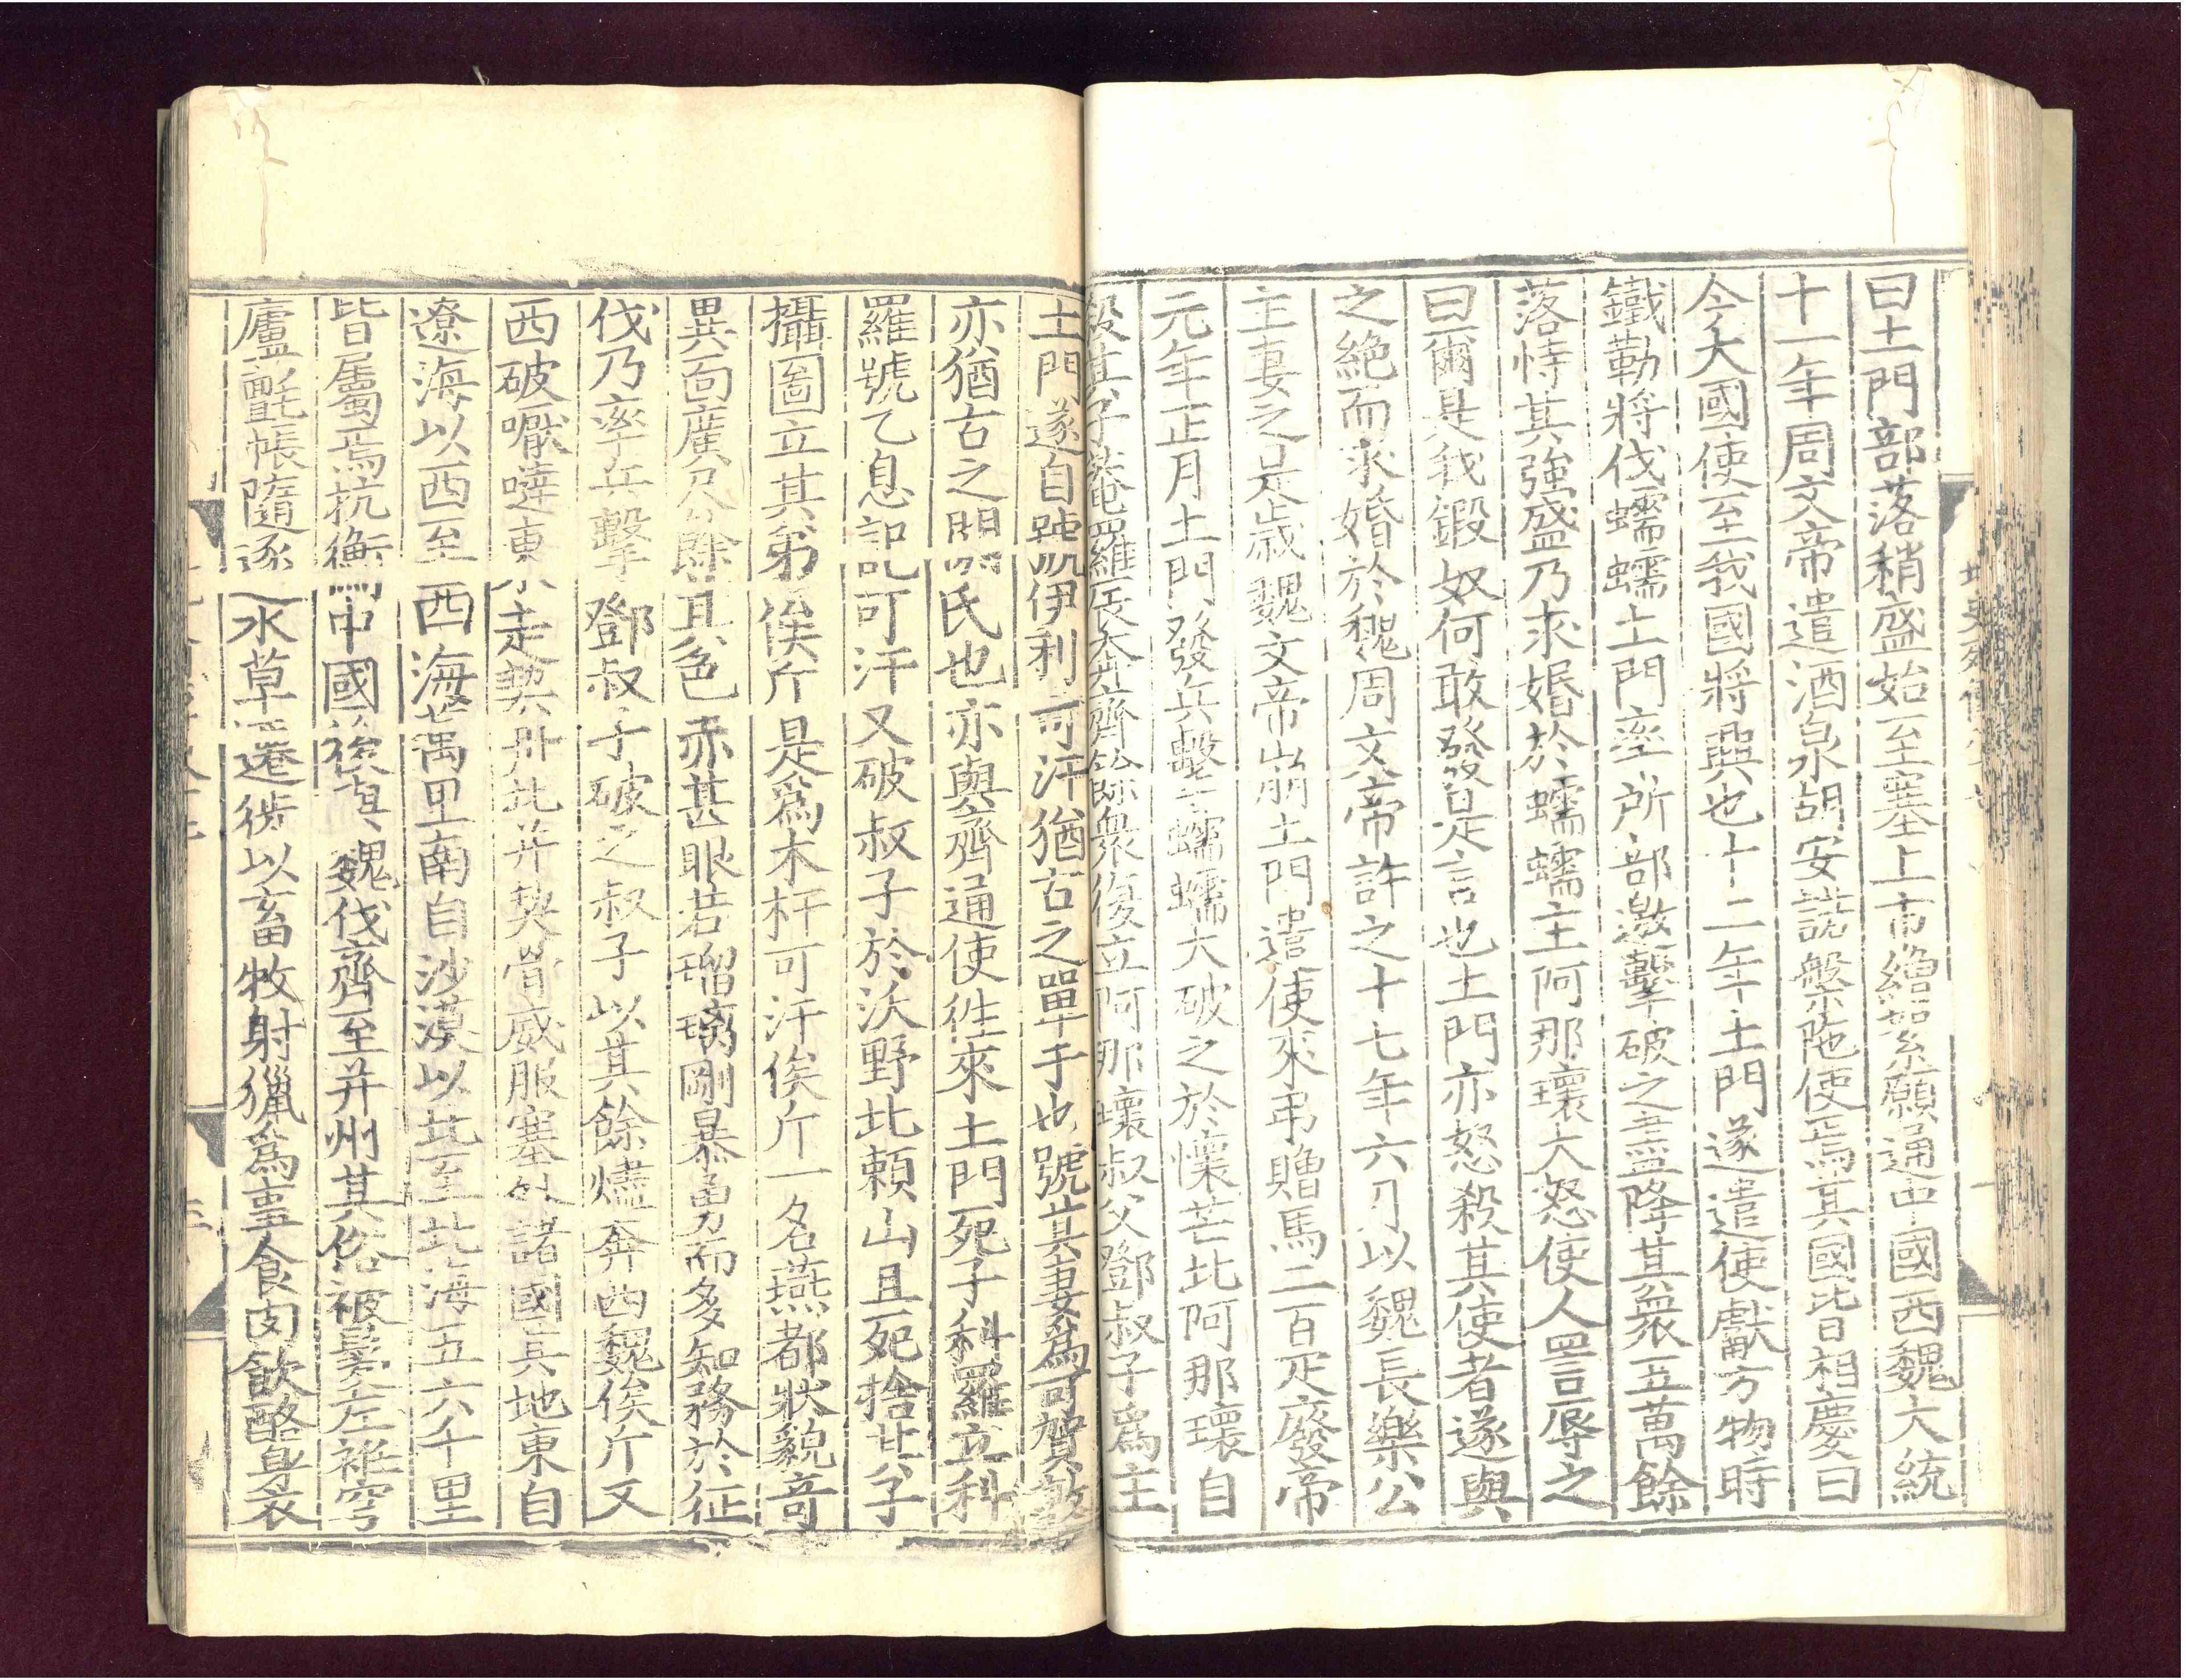 曰土門部落稍盛始至塞上市繒絮願通中國西魏大統
十一年周文帝遣酒泉胡安諾槃陁使焉其國皆相慶曰
今大國使至我國將興也十二年土門遂遣使獻方物時
鐵勒將伐蠕蠕土門率所部邀擊破之盡降其衆五萬餘
落恃其強盛乃求婚於蠕蠕主阿那瓌大怒使人罵辱之
曰爾是我鍛奴何敢發是言也土門亦怒殺其使者遂與
之絶而求婚於魏周文帝許之十七年六月以魏長樂公
主妻之是歲魏文帝崩土門遣使來弔贈馬二百疋廢帝
元年正月土門發兵擊蠕蠕大破之於懷荒北阿那瓌自
殺其子菴羅辰奔齊餘衆復立阿那瓌叔父鄧叔子爲主
土門遂自號伊利可汗猶古之單于也號其妻爲可賀敦
亦猶古之閼氏也亦與齊通使往來土門死子科羅立科
羅號乙息記可汗又破叔子於沃野北賴山且死捨其子
攝圖立其弟俟斤是爲木杆可汗俟斤一名燕都狀貌奇
異面廣尺餘其色赤甚眼若瑠璃剛暴勇而多知務於征
伐乃率兵擊鄧叔子破之叔子以其餘燼奔西魏俟斤又
西破嚈噠東走契丹北并契骨威服塞外諸國其地東自
遼海以西至西海萬里南自沙漠以北至北海五六千里
皆屬焉抗衡中國後與魏伐齊至并州其俗被髮左袵穹
廬氈帳隨逐水草遷徙以畜牧射獵爲事食肉飲酪身衣